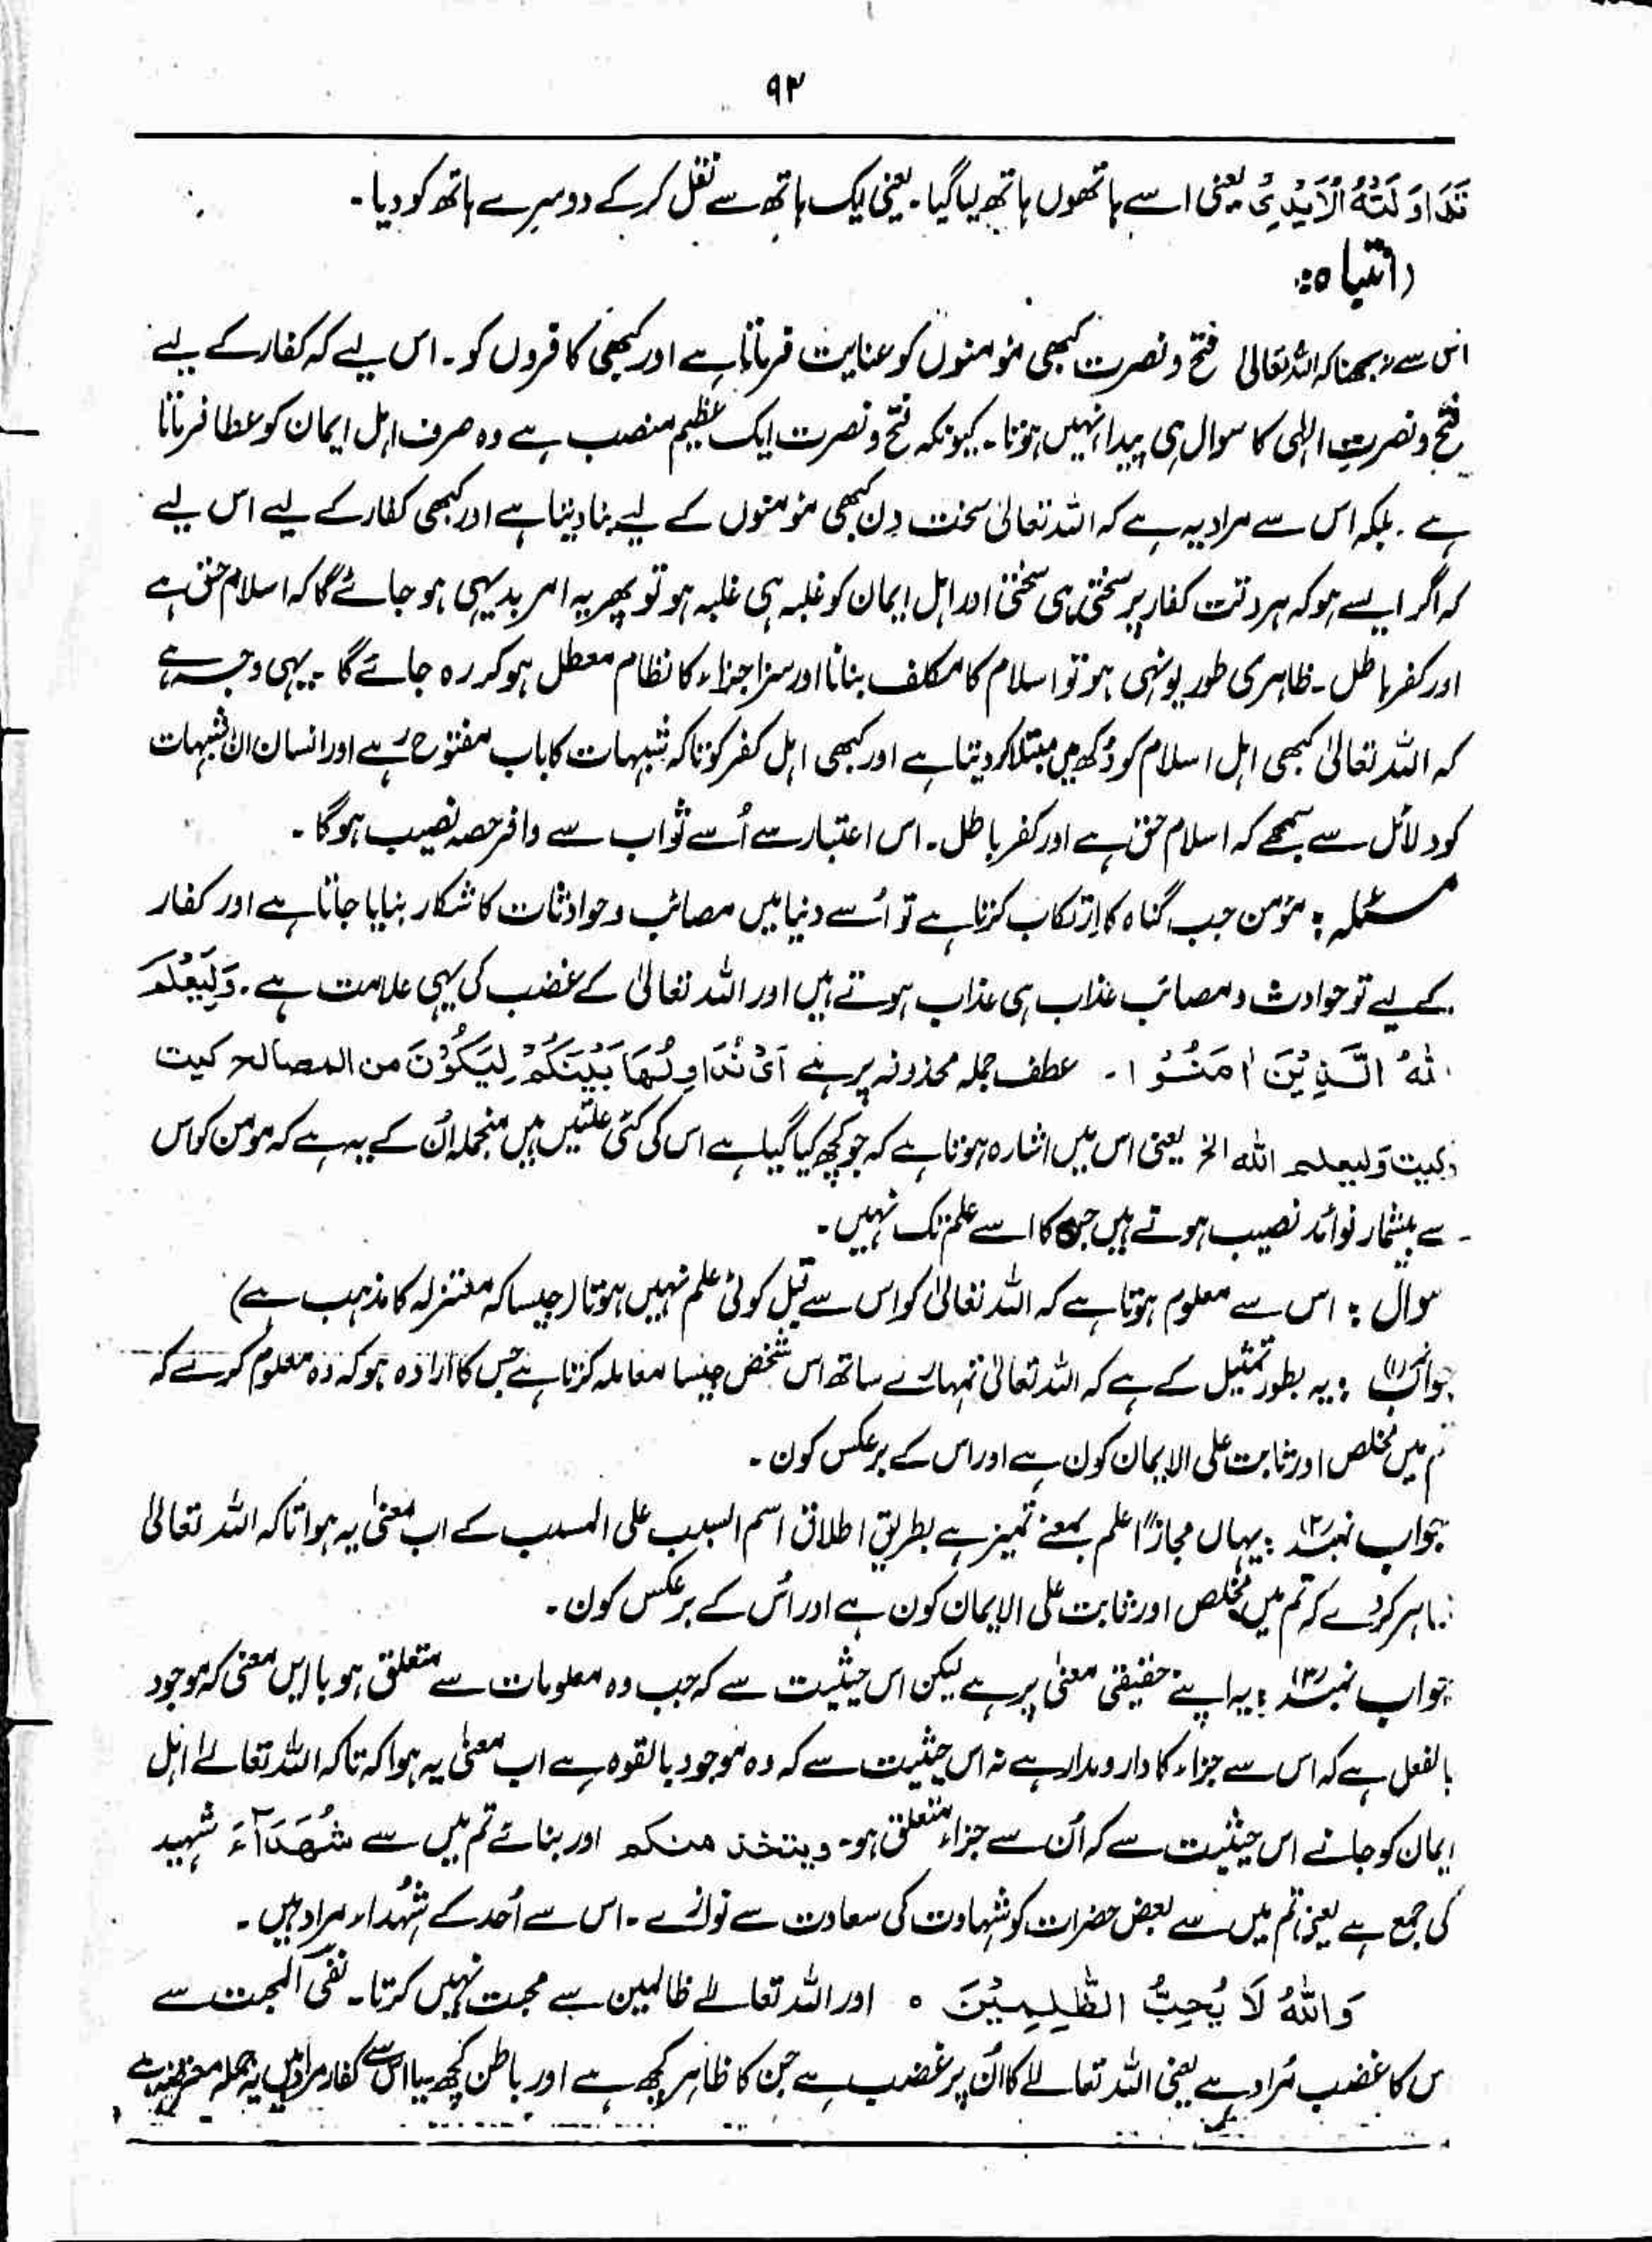 ۹۲
تَدَاوَلَتْهُ الْاَیْدِیْ یعنی اسے ہاتھوں ہاتھ لیا گیا۔ یعنی ایک ہاتھ سے نقل کر کے دوسرے ہاتھ کو دیا۔
(انتباہ :
اس سے نہ سمجھنا کہ اللہ تعالیٰ فتح و نصرت کبھی مؤمنوں کو عنایت فرماتا ہے اور کبھی کافروں کو۔ اس لیے کہ کفار کے لیے
فتح و نصرتِ الٰہی کا سوال ہی پیدا نہیں ہوتا۔ کیونکہ فتح و نصرت ایک عظیم منصب ہے وہ صرف اہل ایمان کو عطا فرماتا
ہے۔ بلکہ اس سے مراد یہ ہے کہ اللہ تعالیٰ سخت دن کبھی مؤمنوں کے لیے بنا دیتا ہے اور کبھی کفار کے لیے اس لیے
کہ اگر ایسے ہو کہ ہر وقت کفار پر سختی ہی سختی اور اہل ایمان کو غلبہ ہی غلبہ ہو تو پھر یہ امر بدیہی ہو جائے گا کہ اسلام حق ہے
اور کفر باطل۔ ظاہری طور یونہی ہو تو اسلام کا مکلف بنانا اور سزا جزاء کا نظام معطل ہو کر رہ جائے گا۔ یہی وجہ ہے
کہ اللہ تعالیٰ کبھی اہل اسلام کو دُکھ میں مبتلا کر دیتا ہے اور کبھی اہل کفر کو تاکہ شبہات کا باب مفتوح رہے اور انسان ان شبہات
کو دلائل سے سمجھے کہ اسلام حق ہے اور کفر باطل۔ اس اعتبار سے اُسے ثواب سے وافر حصہ نصیب ہوگا۔
مسئلہ : مؤمن جب گناہ کا ارتکاب کرتا ہے تو اُسے دنیا میں مصائب و حوادثات کا شکار بنایا جاتا ہے اور کفار
کے لیے تو حوادث و مصائب عذاب ہی عذاب ہوتے ہیں اور اللہ تعالیٰ کے غضب کی یہی علامت ہے۔ وَلِیَعْلَمَ
اللّٰهُ الَّذِیْنَ اٰمَنُوْا۔ عطف جملہ محذوفہ پر ہے اَیْ نُدَاوِلُهَا بَیْنَکُمْ لِیَکُوْنَ من المصالح کیت
وکیت وَلیعلم اللہ الخ یعنی اس میں اشارہ ہوتا ہے کہ جو کچھ کیا گیا ہے اس کی کئی علتیں ہیں منجملہ اُن کے یہ ہے کہ مومن کو اس
سے بیشمار فوائد نصیب ہوتے ہیں جن کا اسے علم تک نہیں۔
سوال : اس سے معلوم ہوتا ہے کہ اللہ تعالیٰ کو اس سے قبل کوئی علم نہیں ہوتا (جیسا کہ معتزلہ کا مذہب ہے)
جواب نمبر (۱) : یہ بطور تمثیل کے ہے کہ اللہ تعالیٰ تمہارے ساتھ اس شخص جیسا معاملہ کرتا ہے جس کا ارادہ ہو کہ وہ معلوم کرے کہ
تم میں مخلص اور ثابت علی الایمان کون ہے اور اس کے برعکس کون۔
جواب نمبر (۲) : یہاں مجازاً علم بمعنے تمیز ہے بطریق اطلاق اسم السبب علی المسبب کے اب معنیٰ یہ ہوا تاکہ اللہ تعالیٰ
ظاہر کر دے کہ تم میں مخلص اور ثابت علی الایمان کون ہے اور اُس کے برعکس کون۔
جواب نمبر (۳) : یہ اپنے حقیقی معنیٰ پر ہے لیکن اس حیثیت سے کہ جب وہ معلومات سے متعلق ہو با ایں معنی کہ موجود
بالفعل ہے کہ اس سے جزاء کا دارومدار ہے نہ اس حیثیت سے کہ وہ موجود بالقوہ ہے اب معنیٰ یہ ہوا کہ تاکہ اللہ تعالےٰ اہل
ایمان کو جانے اس حیثیت سے کہ اُن سے جزاء متعلق ہو۔ ویتخذ منکم اور بنائے تم میں سے شُهَدَآءَ شہید
کی جمع ہے یعنی تم میں سے بعض حضرات کو شہادت کی سعادت سے نوازے۔ اس سے اُحد کے شُہداء مراد ہیں۔
وَاللّٰهُ لَا یُحِبُّ الظّٰلِمِیْنَ ○ اور اللہ تعالےٰ ظالمین سے محبت نہیں کرتا۔ نفی المحبت سے
اس کا غضب مُراد ہے یعنی اللہ تعالےٰ کا اُن پر غضب ہے جن کا ظاہر کچھ ہے اور باطن کچھ یا اس سے کفار مراد ہیں یہ جملہ معترضہ ہے